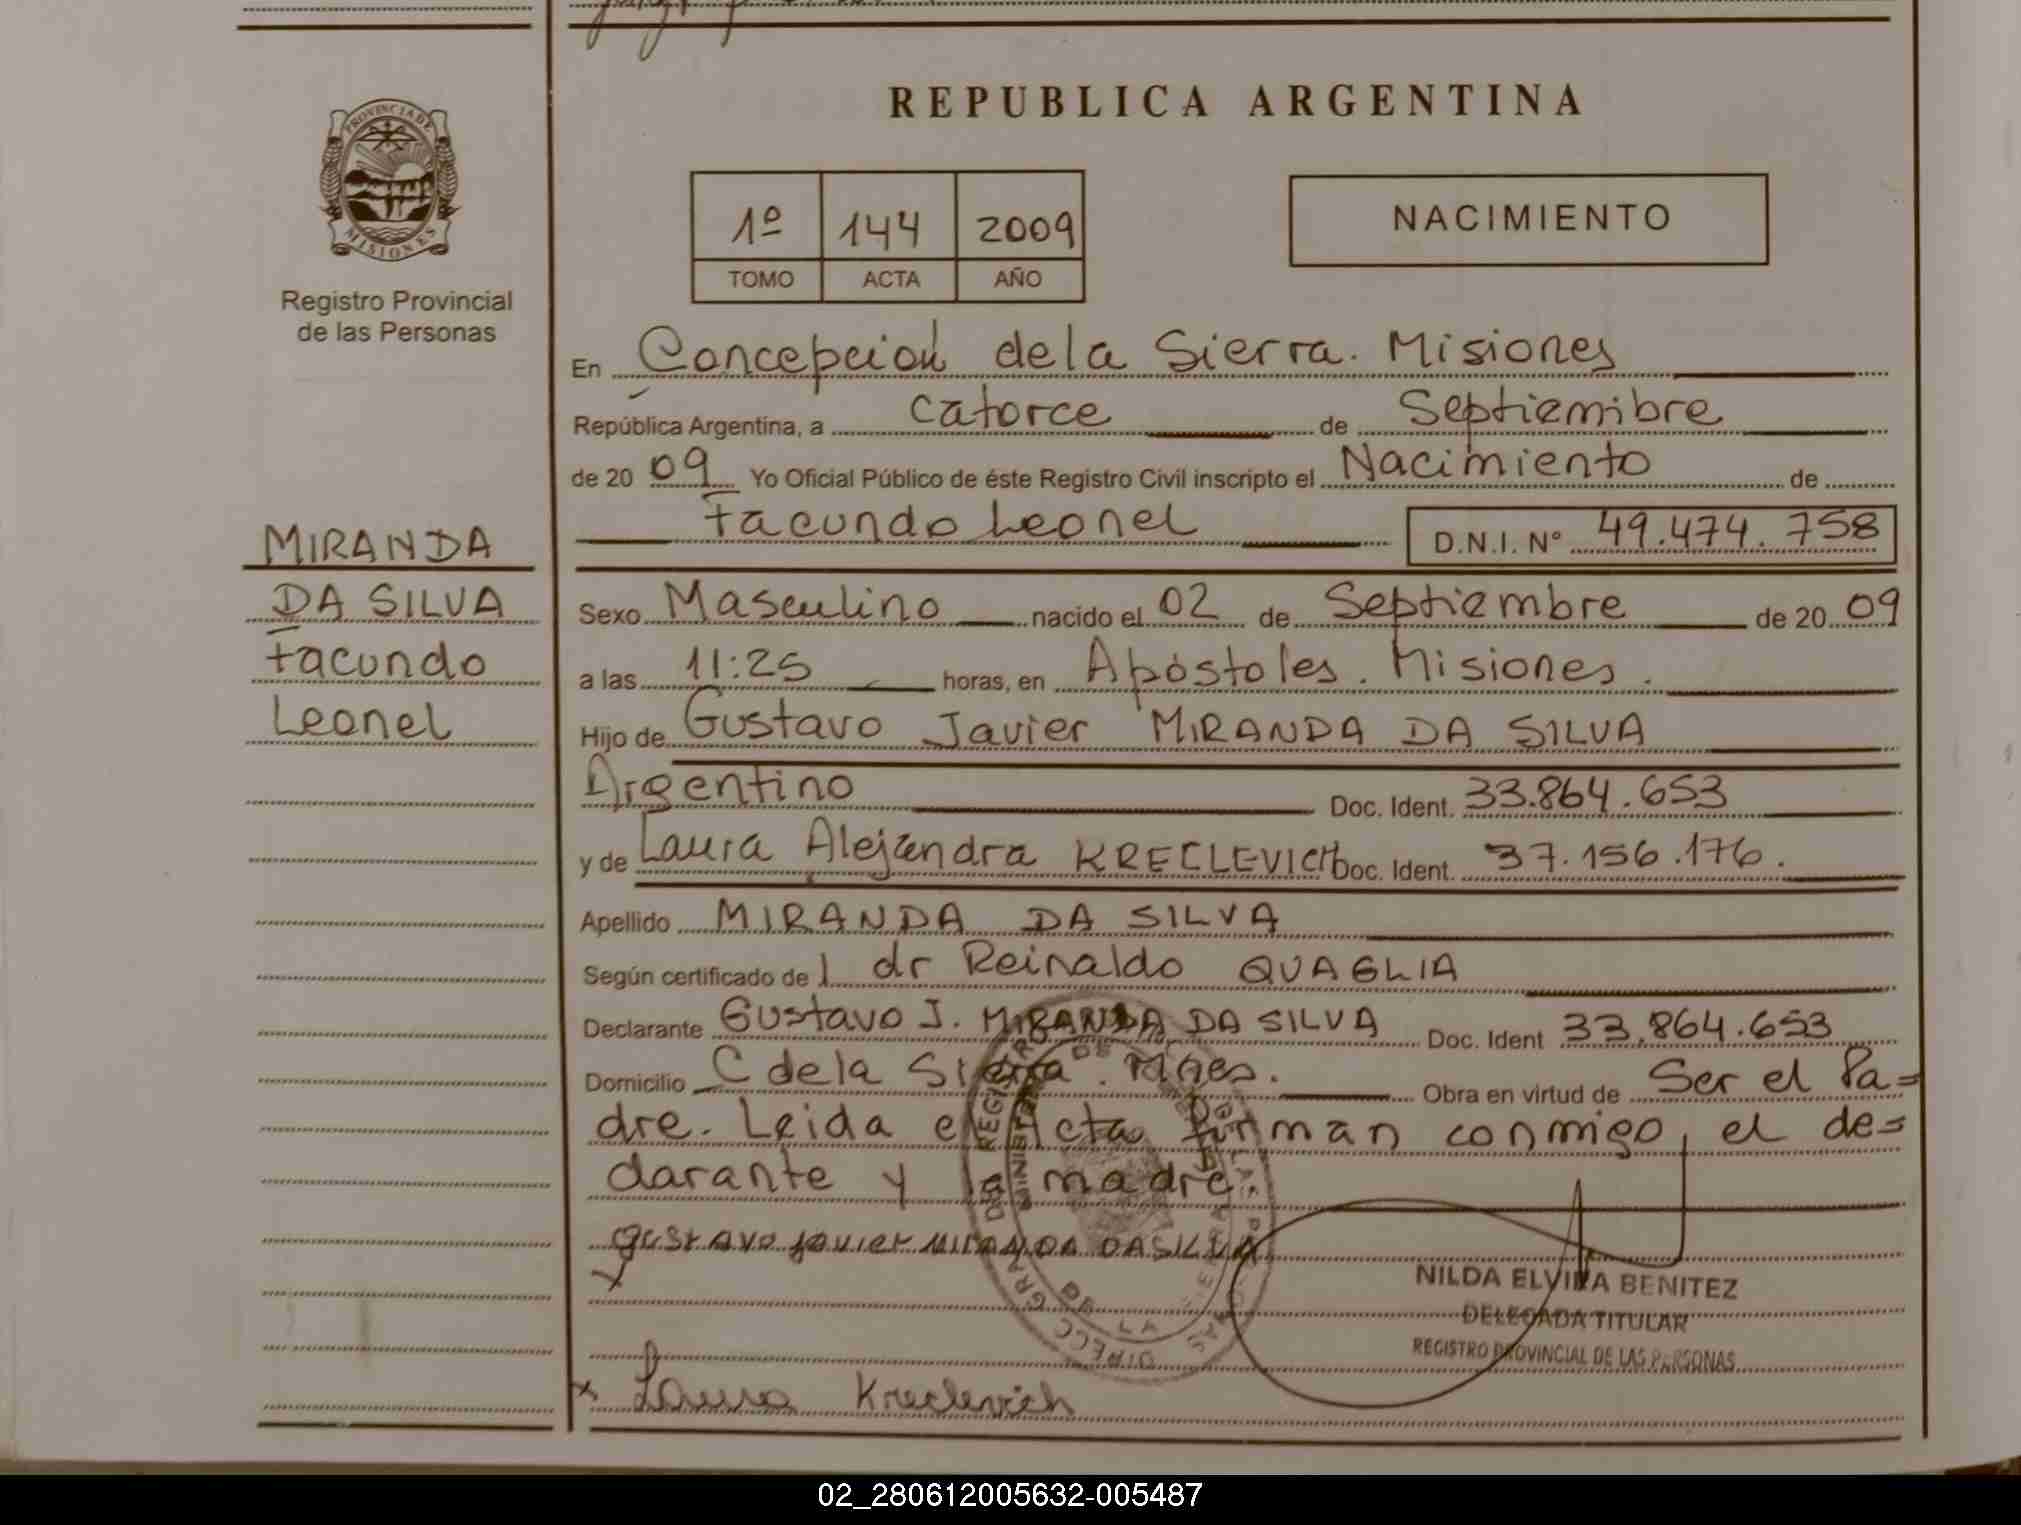 REPUBLICA ARGENTINA
PROVINCIA DE
MISIONES
Registro Provincial
de las Personas
1º 144 2009
TOMO ACTA AÑO
NACIMIENTO
En Concepción de la Sierra. Misiones
República Argentina, a catorce de Septiembre
de 20 09 Yo Oficial Público de éste Registro Civil inscripto el Nacimiento de
Facundo Leonel D.N.I. Nº 49.474.758
MIRANDA
DA SILVA
Facundo
Leonel
Sexo Masculino nacido el 02 de Septiembre de 20 09
a las 11:25 horas, en Apóstoles. Misiones.
Hijo de Gustavo Javier MIRANDA DA SILVA
Argentino Doc. Ident. 33.864.653
y de Laura Alejandra KRECLEVICH Doc. Ident. 37.156.176.
Apellido MIRANDA DA SILVA
Según certificado de l dr Reinaldo QUAGLIA
Declarante Gustavo J. MIRANDA DA SILVA Doc. Ident 33.864.653
Domicilio C de la Sierra. Mnes. Obra en virtud de Ser el Pa=
dre. Leida el Acta firman conmigo, el de=
clarante y la madre.
gustavo javier MIRANDA DA SILVA
NILDA ELVIRA BENITEZ
DELEGADA TITULAR
REGISTRO PROVINCIAL DE LAS PERSONAS
x Laura Kreclevich
02_280612005632-005487